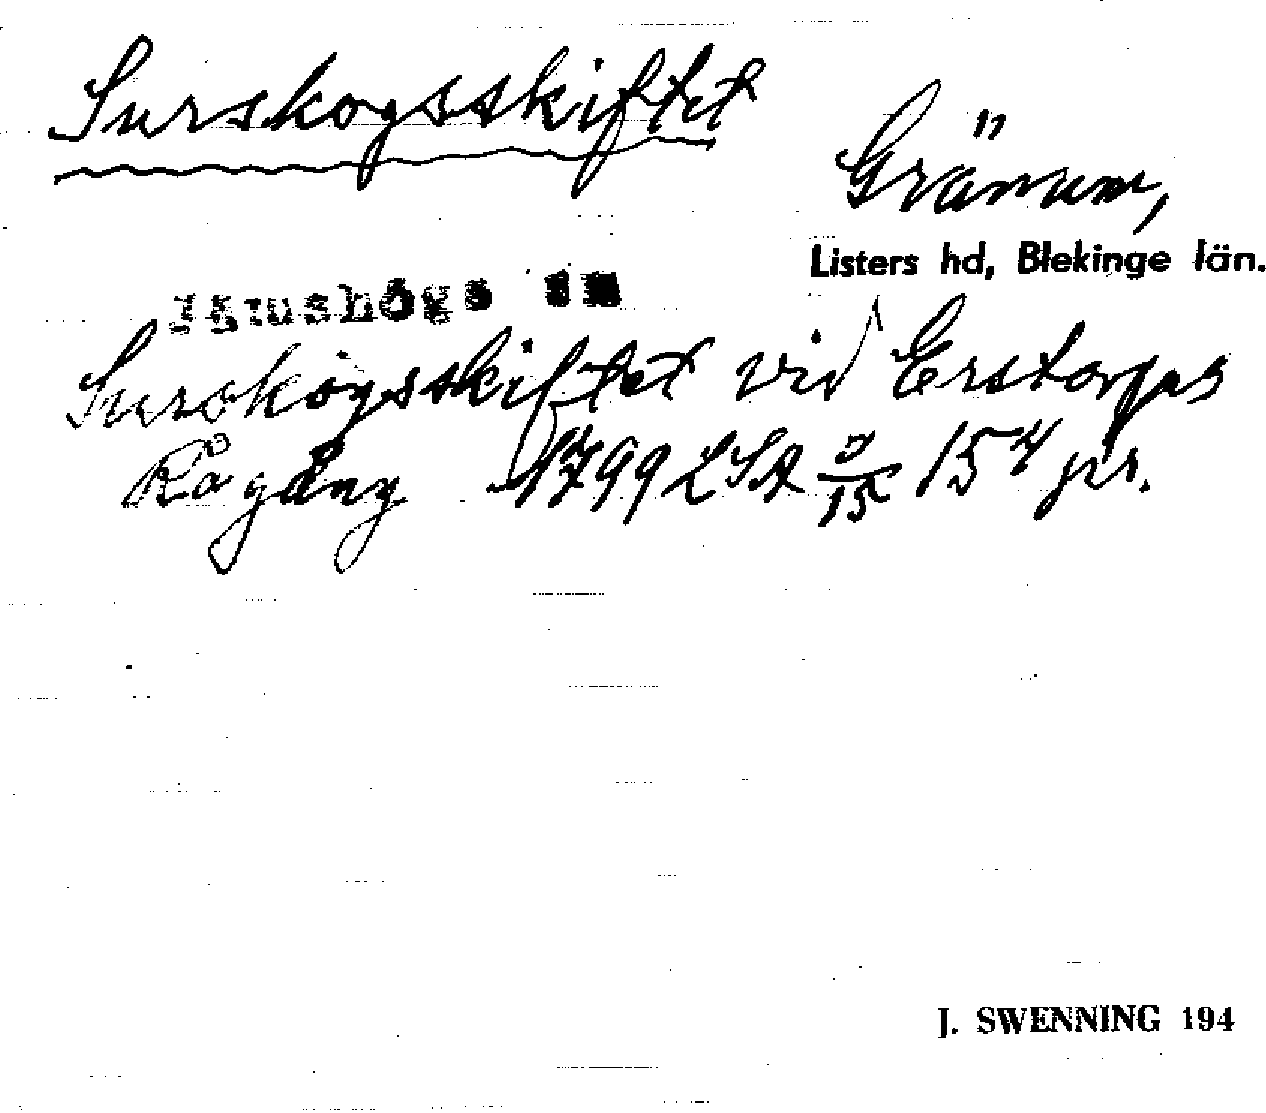 Surskogsskiftet
Gränum,
Listers hd, Blekinge län.
Jämshögs sn
Surskogsskiftet vid Erstorps
Rågång 1799 LSA 15 154 jdr.
J. SWENNING 194